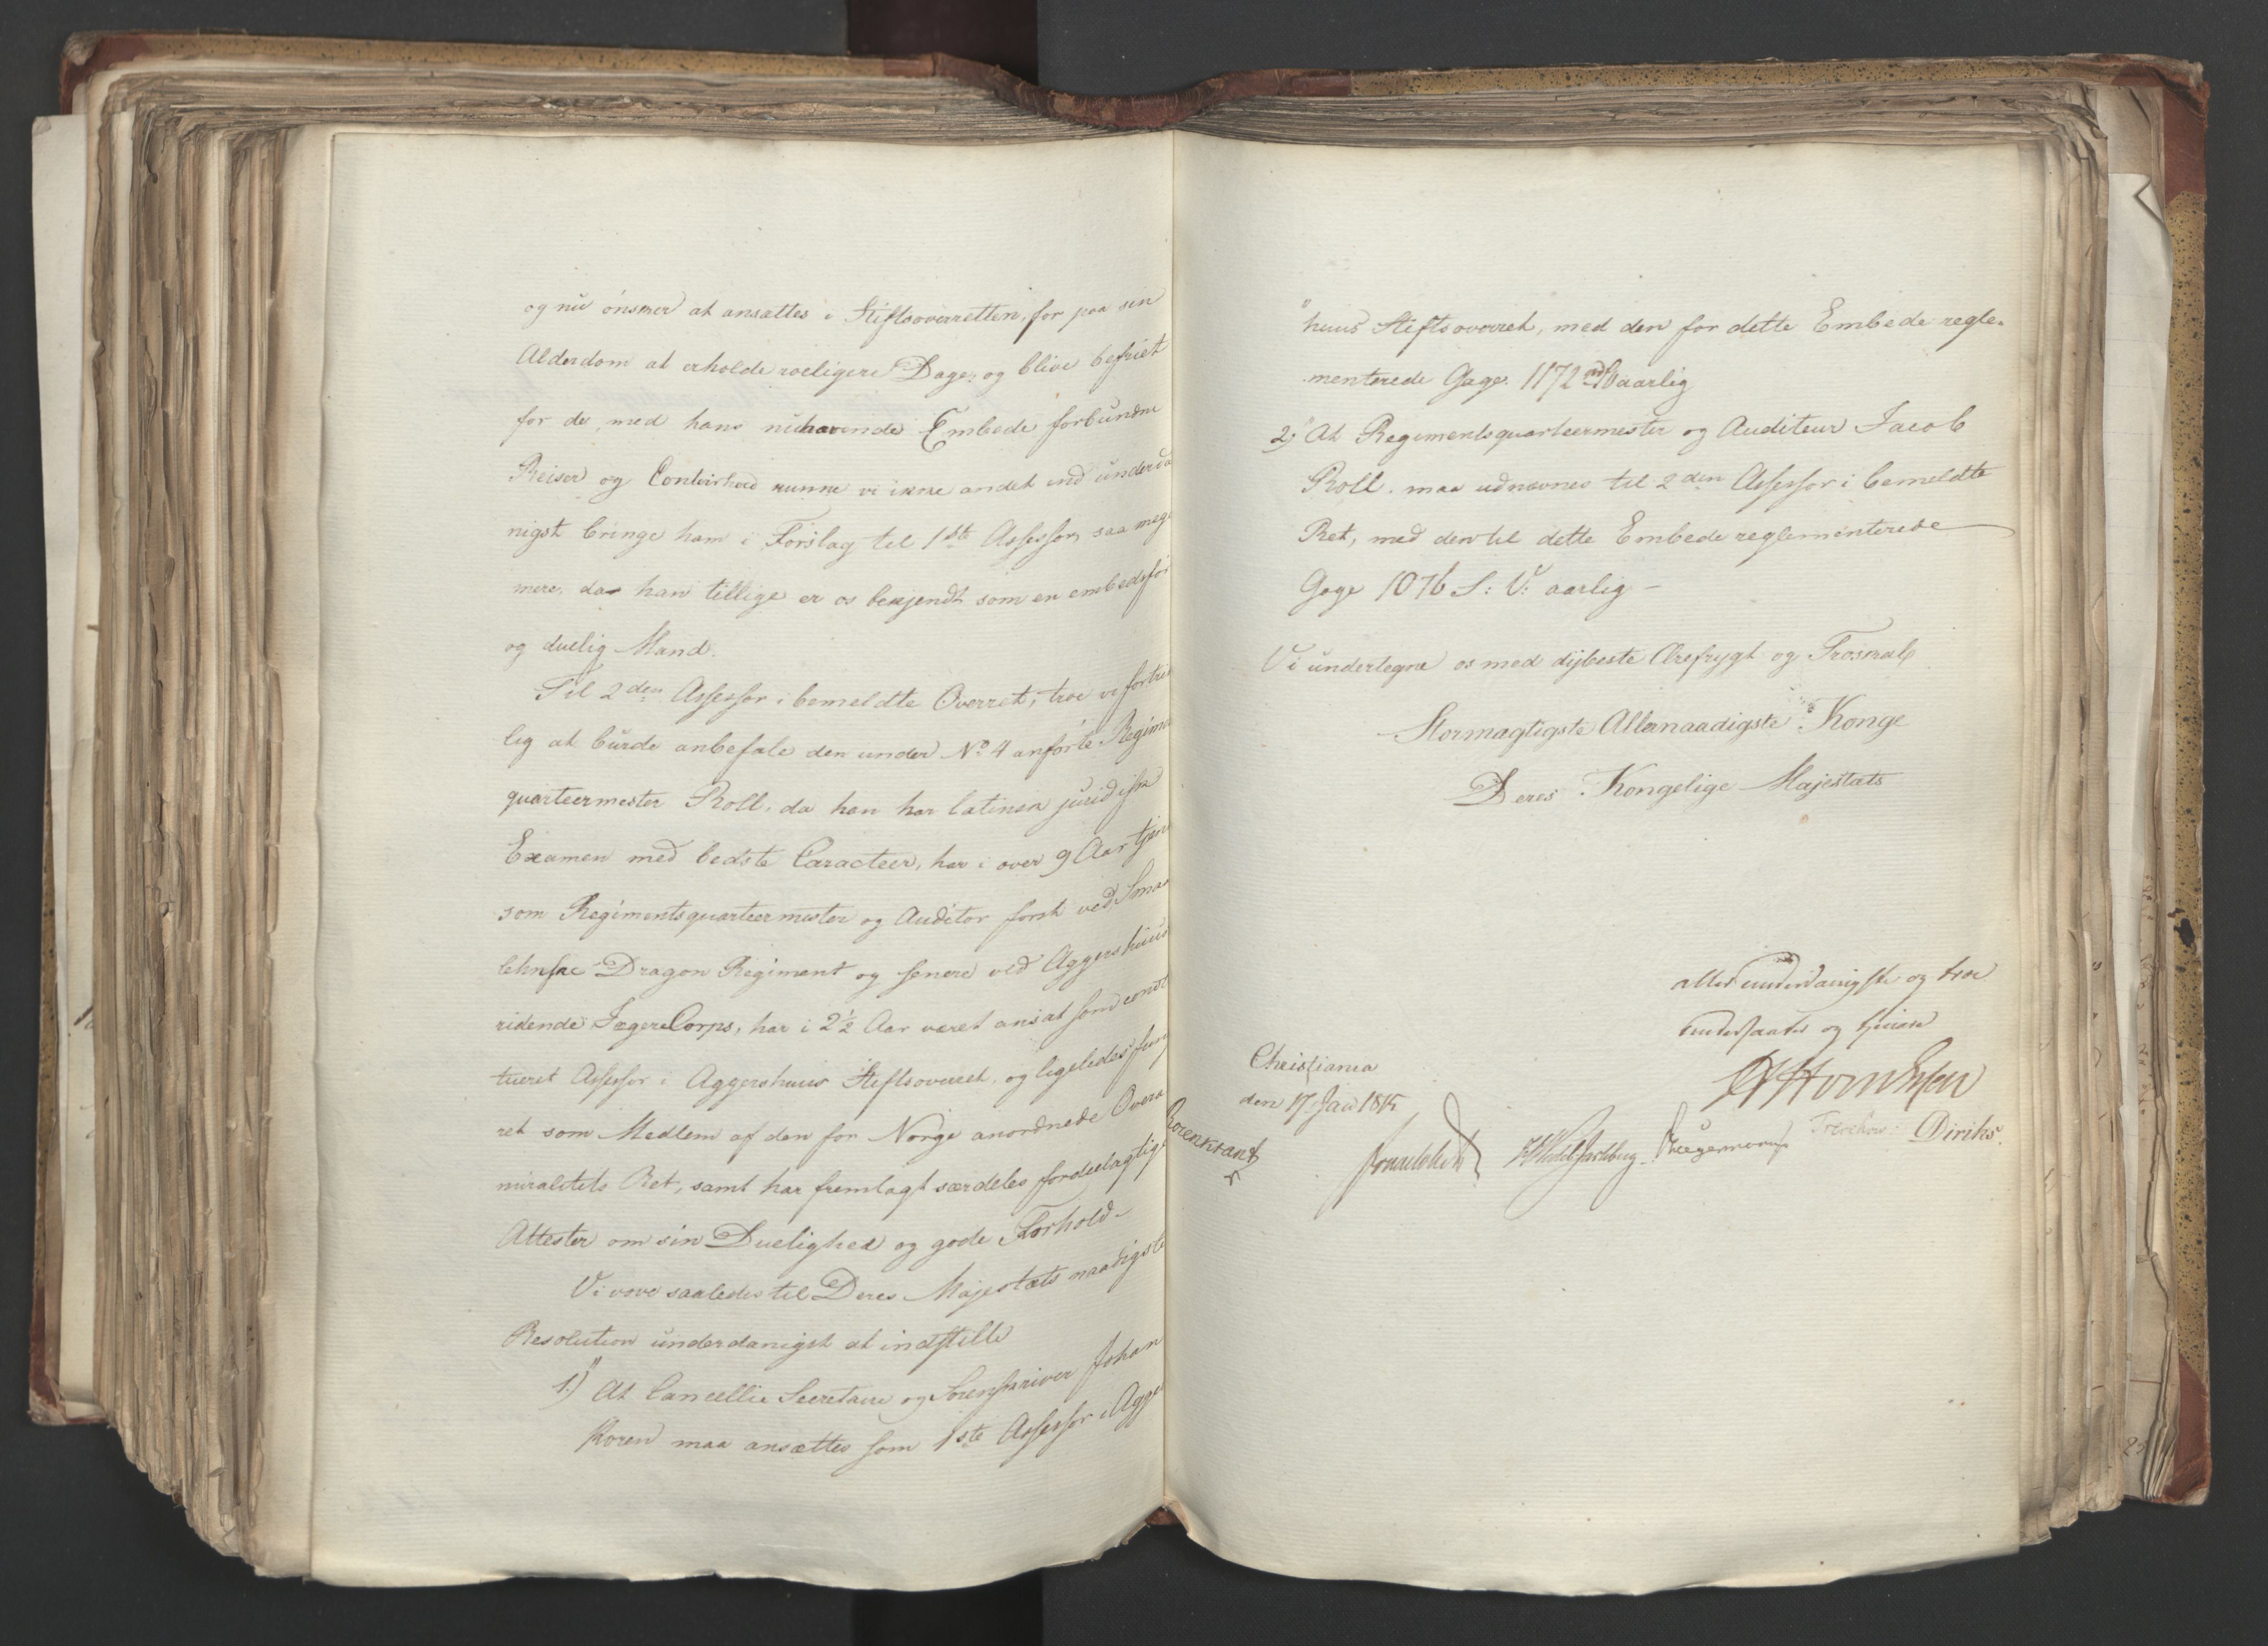 og nu ønsker at ansættes i Stiftsoverretten, for paa sin
Alderdom at erholde roeligere Dage, og blive befriet
for de, med hans nuhavende Embede forbundne
Reiser og Contoirhold kunne vi ikke andet end underda
nigst bringe ham i Forslag til 1ste Assessor, saa meget
mere, da han tillige er os bekjendt som en embedsfør
og duelig Mand.
Til 2den Assessor i bemeldte Overret, troe vi fortrin
lig at burde anbefale den under No 4 anførte Regime
quarteermester Roll, da han har latinsk juridisk
Examen med bedste Caracteer, har i over 9 Aar tjent
som Regimentsquarteermester og Auditør først ved Smaa
lehnske Dragon Regiment og senere ved Aggershuus
ridende Jægere Corps, har i 2½ Aar været ansat som const
tueret Assessor i Aggershuus Stiftsoverret, og ligeledes fung
ret som Medlem af den for Norge anordnede Overad
miralitets Ret, samt har fremlagt særdeles fordeelagtige
Attester om sin Duelighed og gode Forhold.
Vi vove saaledes til Deres Majestæts naadigste
Resolution underdanigst at indstille
1.) At Cancellie Secretaire og Sorenskriver Johan
Koren maa ansættes som 1ste Assessor i Agger
huus Stiftsoverret, med den for dette Embede regle-
menterede Gage 1172 rd aarlig
2) At Regimentsquarteermester og Auditeur Jacob
Roll maa udnævnes til 2den Assessor i bemeldte
Ret, med den til dette Embede reglementerede
Gage 1076 S: V: aarlig –
Vi undertegne os med dybeste Ærefrygt og Troskab
Stormægtigste Allernaadigste Konge
Deres Kongelige Majestæts
allerunderdanigste og troe
undersaatter og tienere
Christiania
den 17 Jan 1815
Rosenkrantz
Sommerhielm
Wedel Jarlsberg
Hegermann
Treschow
Diriks.